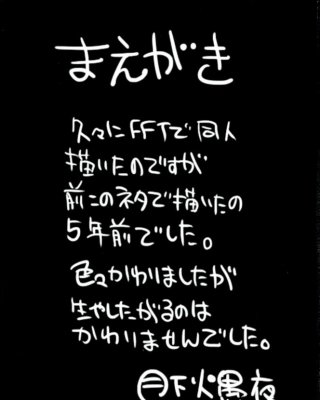 まえがき
久々にFFTで同人
描いたのですが
前このネタで描いたの
5年前でした。
色々かわりましたが
生やしたがるのは
かわりませんでした。
月下火黒夜